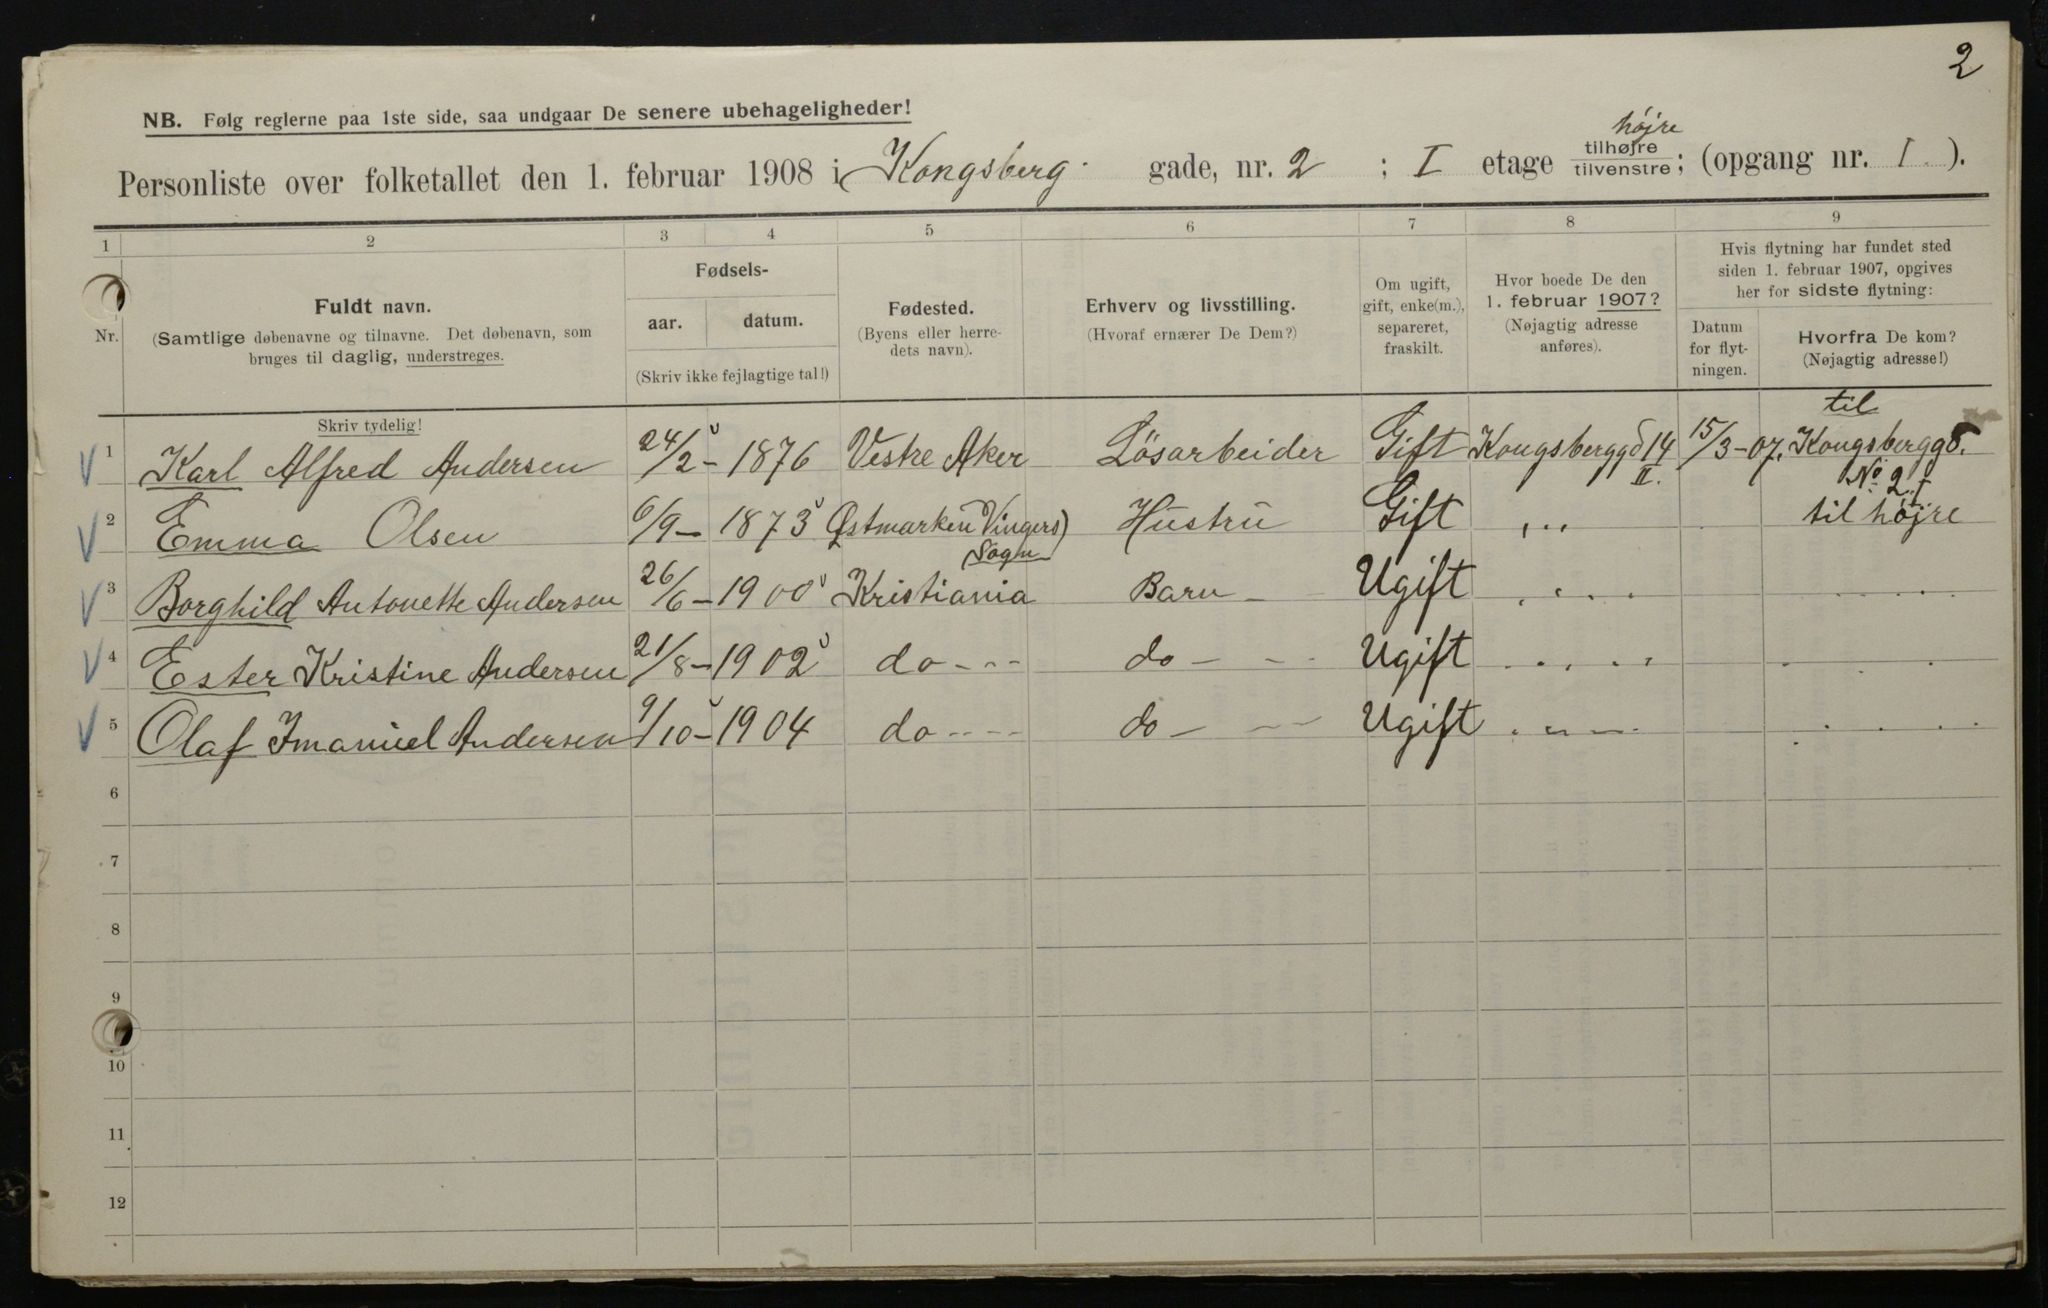 2
NB. Følg reglerne paa 1ste side, saa undgaar De senere ubehageligheder!
højre
Personliste over folketallet den 1. februar 1908 i Kongsberg gade, nr. 2 ; I etage tilhøjre / tilvenstre ; (opgang nr. I ).
1 2 3 4 5 6 7 8 9
Nr.
Fuldt navn.
(Samtlige døbenavne og tilnavne. Det døbenavn, som
bruges til daglig, understreges.
Skriv tydelig!
Fødsels-
aar. datum.
(Skriv ikke fejlagtige tal!)
Fødested.
(Byens eller herre-
dets navn).
Erhverv og livsstilling.
(Hvoraf ernærer De Dem?)
Om ugift,
gift, enke(m.),
separeret,
fraskilt.
Hvor boede De den
1. februar 1907?
(Nøjagtig adresse
anføres).
Hvis flytning har fundet sted
siden 1. februar 1907, opgives
her for sidste flytning:
Datum
for flyt-
ningen.
Hvorfra De kom?
(Nøjagtig adresse!)
til
1 Karl Alfred Andersen 24/2 - 1876 Vestre Aker Lösarbeider Gift Kongsberggd 14 15/3 - 07. Kongsberggd.
II. No 2 I
2 Emma Olsen 6/9 - 1873 Østmarken Vingers) Hustru Gift " til højre
Sogn
3 Borghild Antonette Andersen 26/6 - 1900 Kristiania Barn - Ugift
4 Ester Kristine Andersen 21/8 - 1902 do - - - do - - Ugift
5 Olaf Imanuel Andersen 9/10 - 1904 do - - - - do - - - Ugift
6
7
8
9
10
11
12